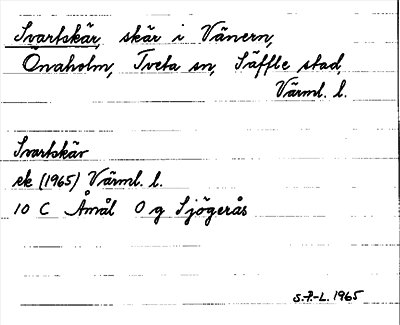 Svartskär, skär i Vänern,
Önaholm, Tveta sn, Säffle stad,
Värml. l.
Svartskär
ek (1965) Värml. l.
10 C Åmål O g Sjögerås
S.F.-L. 1965